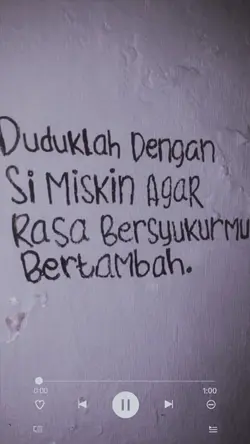 Duduklah Dengan
Si Miskin Agar
Rasa Bersyukurmu
Bertambah.
0:00
1:00